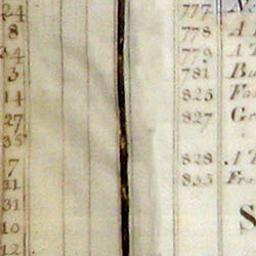 24
8
34
3
14
27
35
7
21
31
10
12
777
778 A
779 A T
781 Ba
825 Fa
827 Gr
828 A T
835 Fra
S